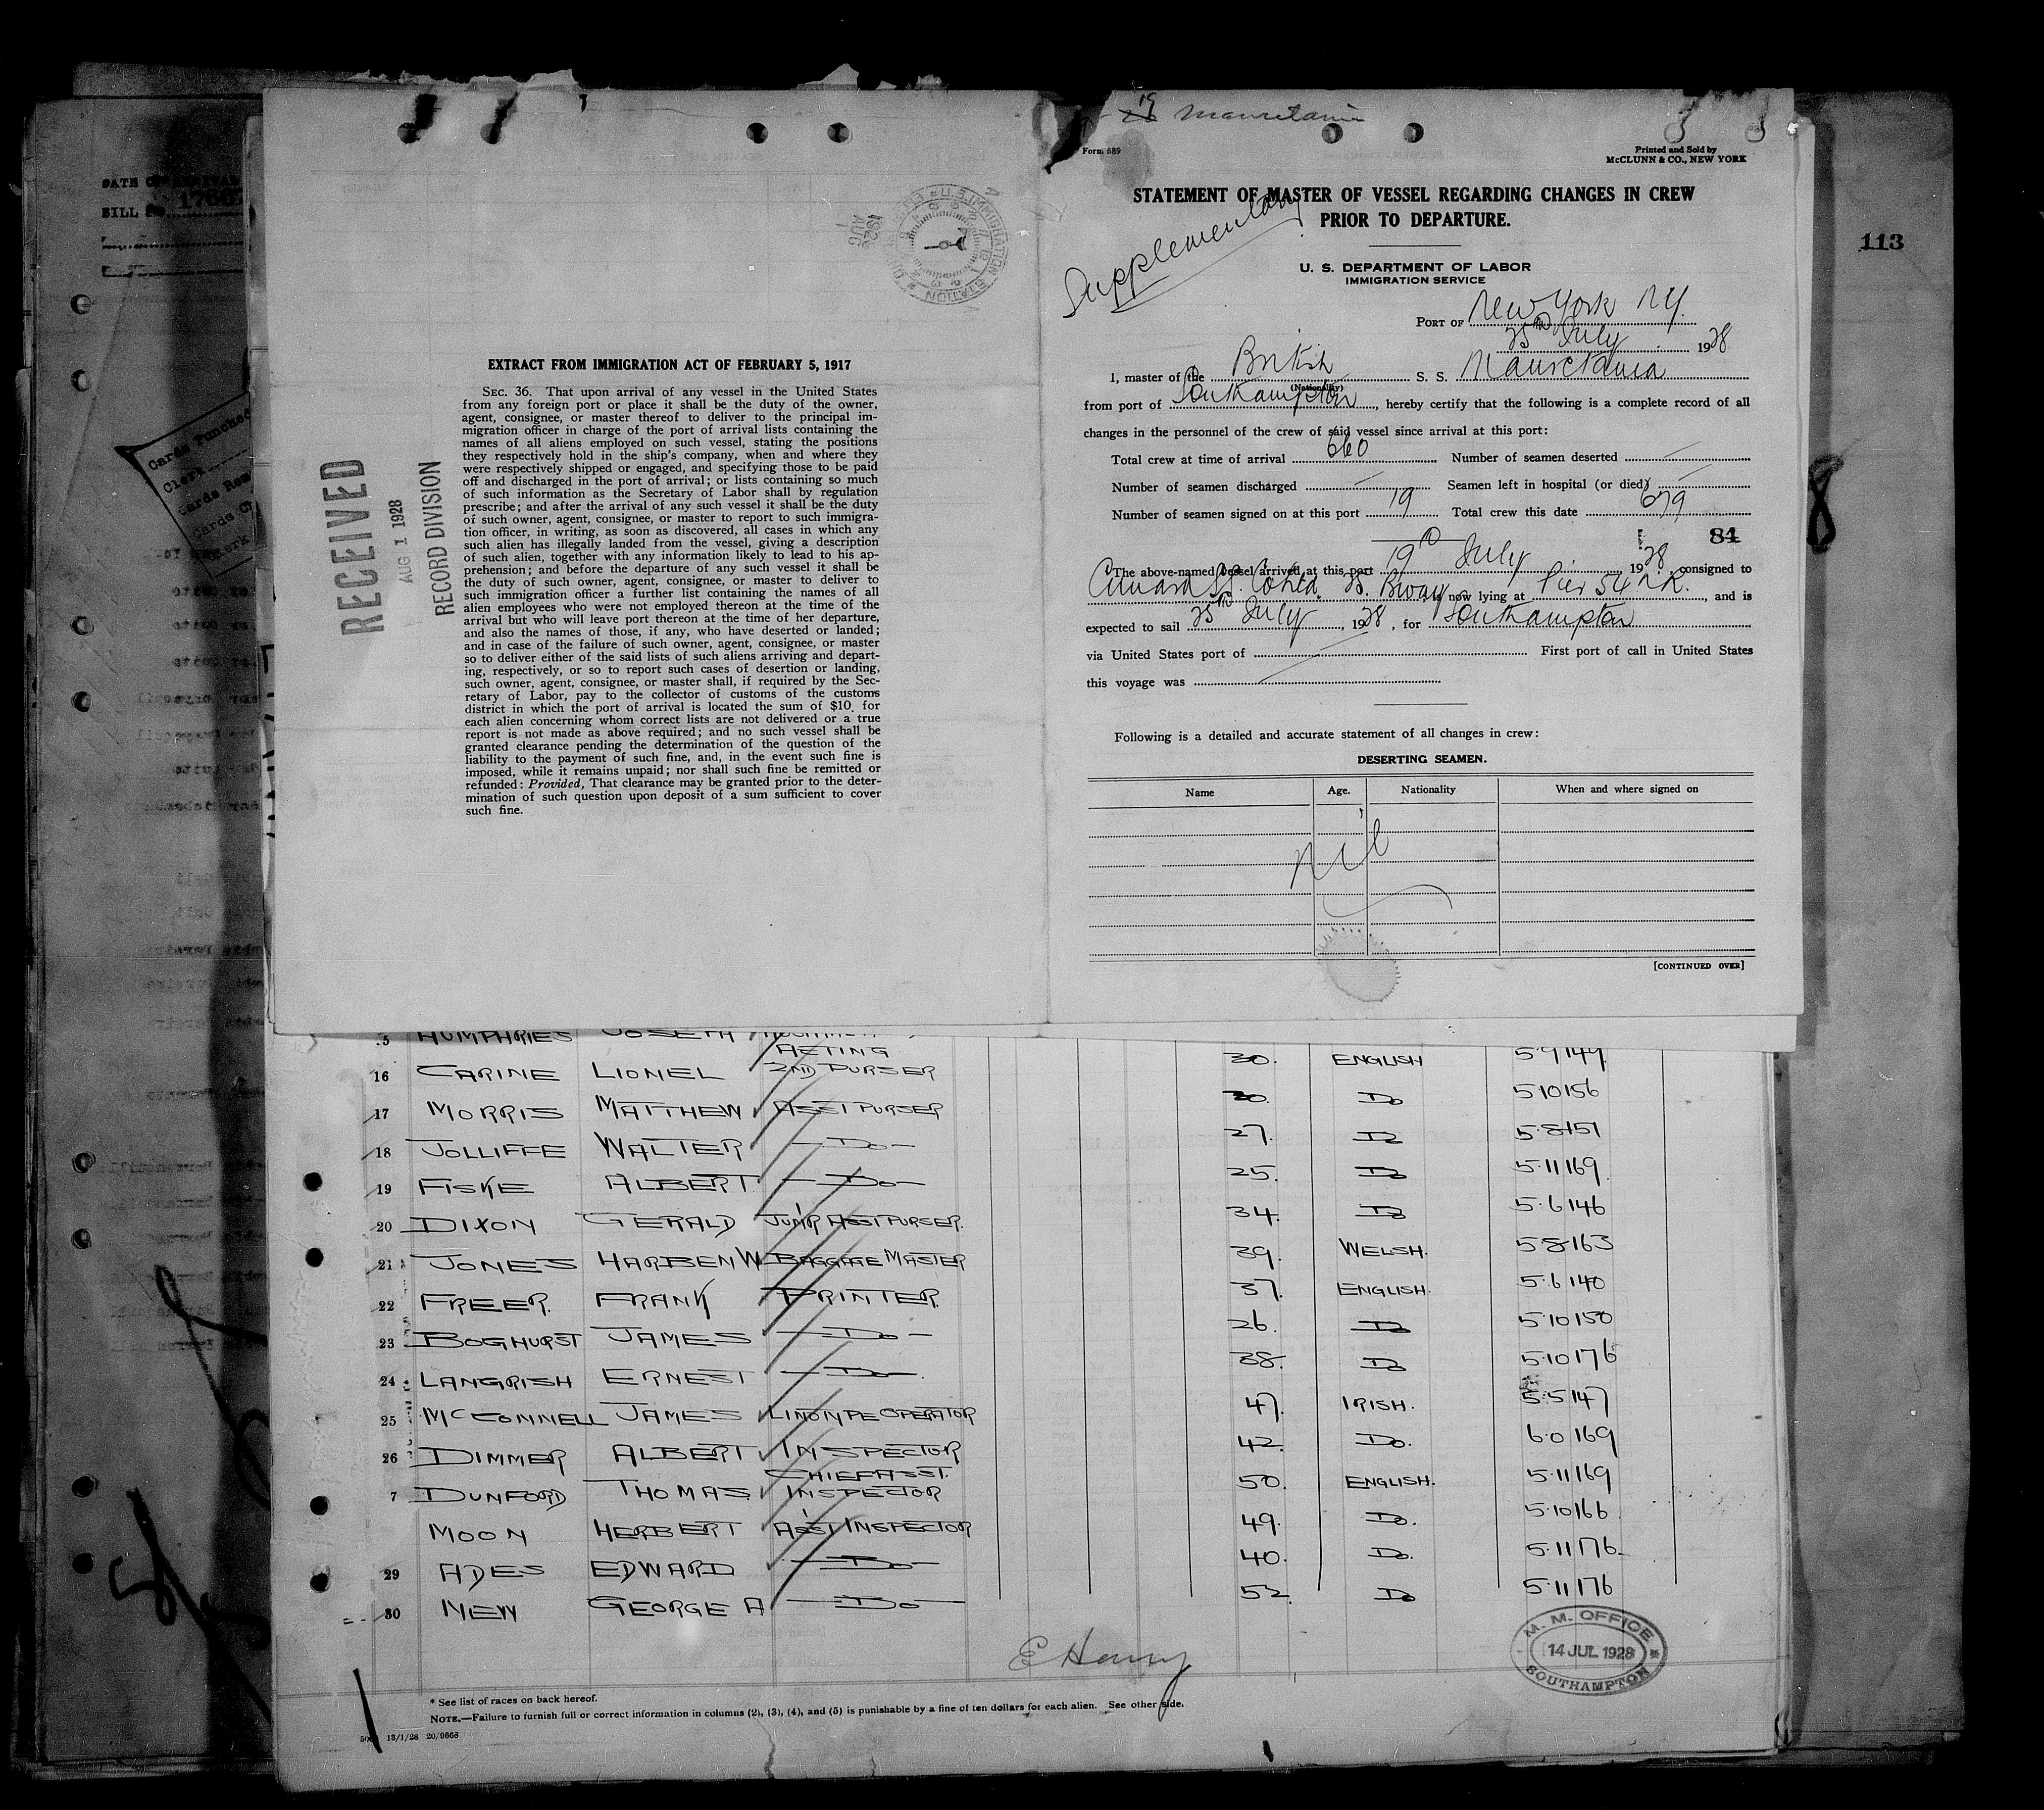 19 Mauretania
Form 689
Printed and Sold by
McCLUNN & CO., NEW YORK
STATEMENT OF MASTER OF VESSEL REGARDING CHANGES IN CREW
PRIOR TO DEPARTURE.
Supplementary
U. S. DEPARTMENT OF LABOR
IMMIGRATION SERVICE
PORT OF New York NY.
25th July 1928
I, master of the British S. S. Mauretania
(Nationality)
from port of Southampton, hereby certify that the following is a complete record of all
changes in the personnel of the crew of said vessel since arrival at this port:
Total crew at time of arrival 660 Number of seamen deserted
Number of seamen discharged Seamen left in hospital (or died)
Number of seamen signed on at this port 19 Total crew this date 679
84
The above-named vessel arrived at this port 19th July 1928, consigned to
Cunard SS. Co Ltd. 25. Bway is now lying at Pier 54 N.R., and is
expected to sail 25th July, 1928, for Southampton
via United States port of First port of call in United States
this voyage was
Following is a detailed and accurate statement of all changes in crew:
DESERTING SEAMEN.
Name Age. Nationality When and where signed on
Nil
[CONTINUED OVER]
EXTRACT FROM IMMIGRATION ACT OF FEBRUARY 5, 1917
SEC. 36. That upon arrival of any vessel in the United States
from any foreign port or place it shall be the duty of the owner,
agent, consignee, or master thereof to deliver to the principal im-
migration officer in charge of the port of arrival lists containing the
names of all aliens employed on such vessel, stating the positions
they respectively hold in the ship's company, when and where they
were respectively shipped or engaged, and specifying those to be paid
off and discharged in the port of arrival; or lists containing so much
of such information as the Secretary of Labor shall by regulation
prescribe; and after the arrival of any such vessel it shall be the duty
of such owner, agent, consignee, or master to report to such immigra-
tion officer, in writing, as soon as discovered, all cases in which any
such alien has illegally landed from the vessel, giving a description
of such alien, together with any information likely to lead to his ap-
prehension; and before the departure of any such vessel it shall be
the duty of such owner, agent, consignee, or master to deliver to
such immigration officer a further list containing the names of all
alien employees who were not employed thereon at the time of the
arrival but who will leave port thereon at the time of her departure,
and also the names of those, if any, who have deserted or landed;
and in case of the failure of such owner, agent, consignee, or master
so to deliver either of the said lists of such aliens arriving and depart-
ing, respectively, or so to report such cases of desertion or landing,
such owner, agent, consignee, or master shall, if required by the Sec-
retary of Labor, pay to the collector of customs of the customs
district in which the port of arrival is located the sum of $10 for
each alien concerning whom correct lists are not delivered or a true
report is not made as above required; and no such vessel shall be
granted clearance pending the determination of the question of the
liability to the payment of such fine, and, in the event such fine is
imposed, while it remains unpaid; nor shall such fine be remitted or
refunded: Provided, That clearance may be granted prior to the deter-
mination of such question upon deposit of a sum sufficient to cover
such fine.
RECEIVED
AUG 1 1928
RECORD DIVISION
U.S. IMMIGRATION STATION
113
Cards Punched
Clerk
5 HUMPHRIES JOSEPH
16 CARINE LIONEL ACTING 2ND PURSER 30. ENGLISH 5·9 149
17 MORRIS MATTHEW ASST PURSER 30. Do 5·10 156
18 JOLLIFFE WALTER Do 27. Do 5·8 151
19 FISKE ALBERT Do 25. Do 5·11 169
20 DIXON GERALD JUN'R ASST PURSER. 34. Do 5·6 146
21 JONES HARBEN W BAGGAGE MASTER 39. WELSH. 5·8 163
22 FREER. FRANK PRINTER. 37. ENGLISH. 5·6 140
23 BOGHURST JAMES Do 26. Do 5·10 150
24 LANGRISH ERNEST Do 38. Do 5·10 176
25 McCONNELL JAMES LINOTYPE OPERATOR 47. IRISH. 5·5 147
26 DIMMER ALBERT INSPECTOR 42. Do. 6·0 169
7 DUNFORD THOMAS CHIEF ASST. INSPECTOR 50. ENGLISH. 5·11 169
MOON HERBERT ASST INSPECTOR 49. Do. 5·10 166
29 ADES EDWARD Do 40. Do. 5·11 176
30 NEW GEORGE A Do 52. Do 5·11 176
M. M. OFFICE
14 JUL 1928
SOUTHAMPTON
* See list of races on back hereof.
NOTE.—Failure to furnish full or correct information in columns (2), (3), (4), and (5) is punishable by a fine of ten dollars for each alien. See other side.
13/1/28 20/9668